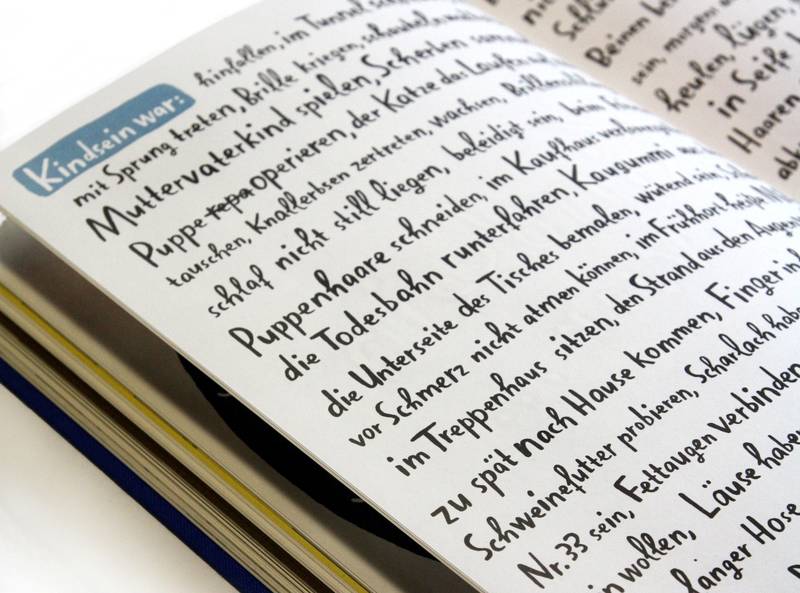 Kindsein war:
hinfallen, im Tunnel
mit Sprung treten, Brille kriegen, schaukeln
Muttervaterkind spielen, Scherben
Puppe repa operieren, der Katze das Laufen
tauschen, Knallerbsen zertreten, wachsen,
schlaf nicht still liegen, beleidigt sein, beim
Puppenhaare schneiden, im Kaufhaus
die Todesbahn runterfahren, Kaugummi
die Unterseite des Tisches bemalen, wütend sein
vor Schmerz nicht atmen können, im Frühhort
im Treppenhaus sitzen, den Strand aus den
zu spät nach Hause kommen, Finger in
Schweinefutter probieren, Scharlach haben
Nr. 33 sein, Fettaugen verbinden
wollen, Läuse haben
langer Hose
Beinen
sein, morgens
heulen, lügen,
in Seife
Haaren